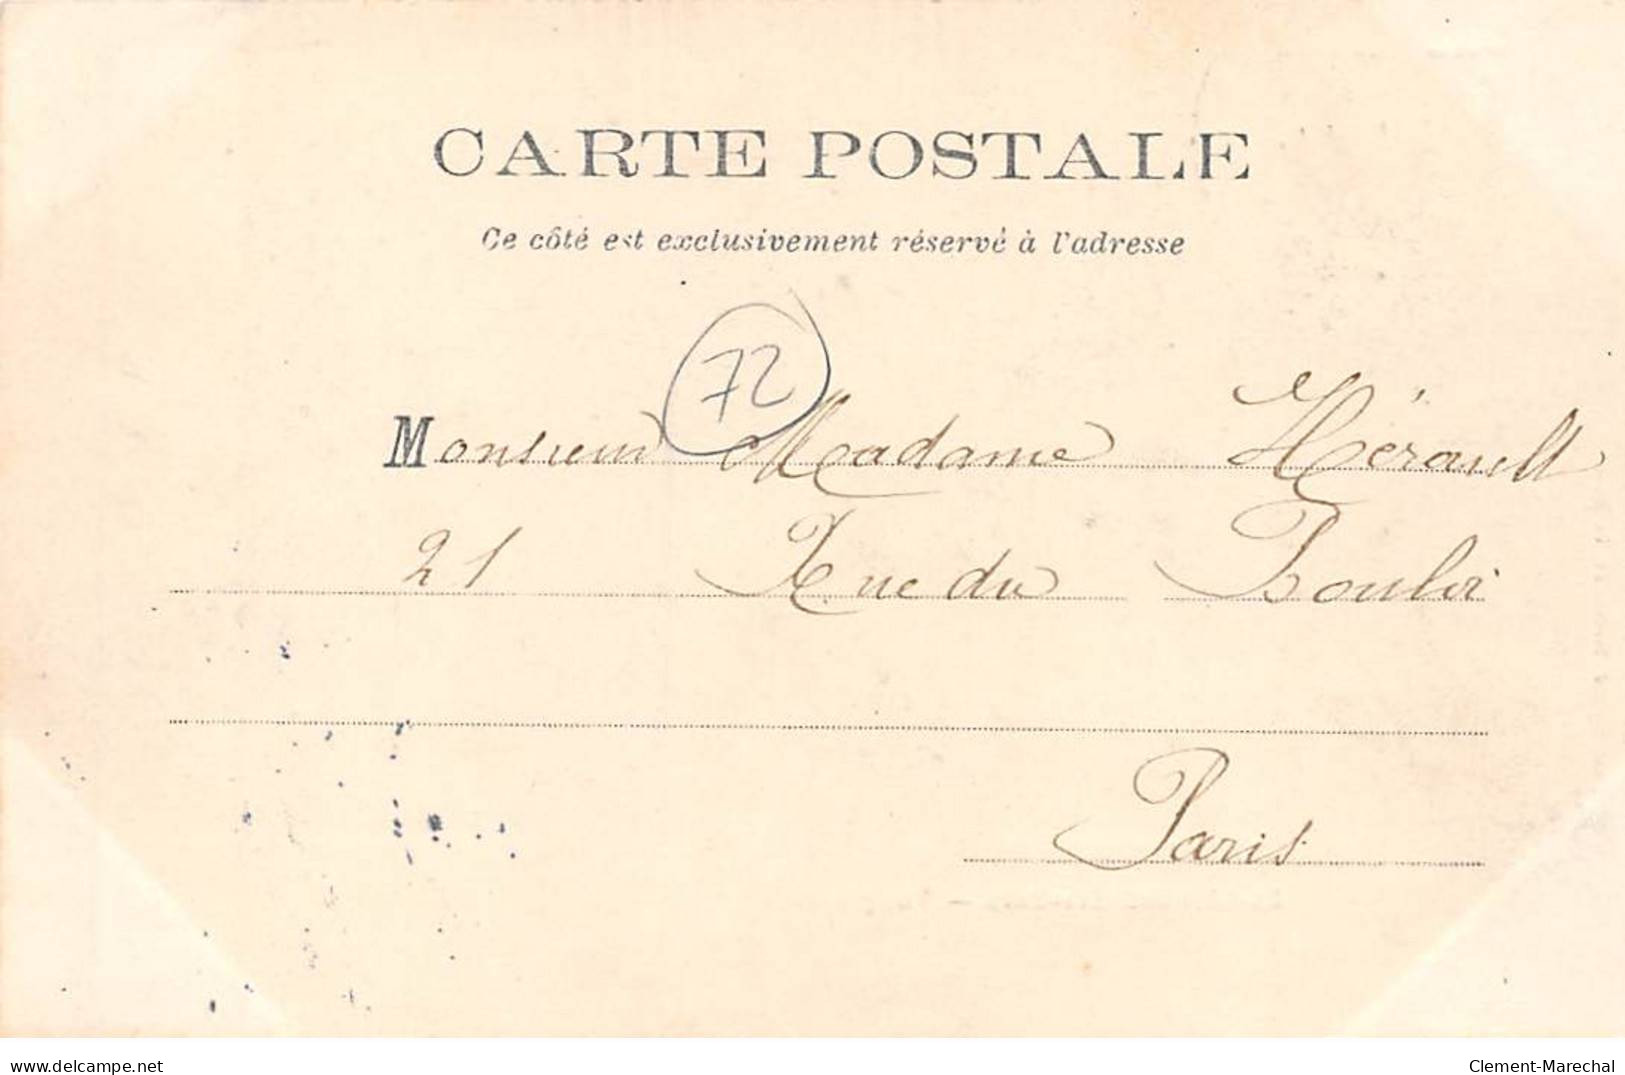 CARTE POSTALE
Ce côté est exclusivement réservé à l'adresse
72
Monsieur Madame Hérault
21 Rue du Bouloi
Paris
www.delcampe.net
Clement-Marechal